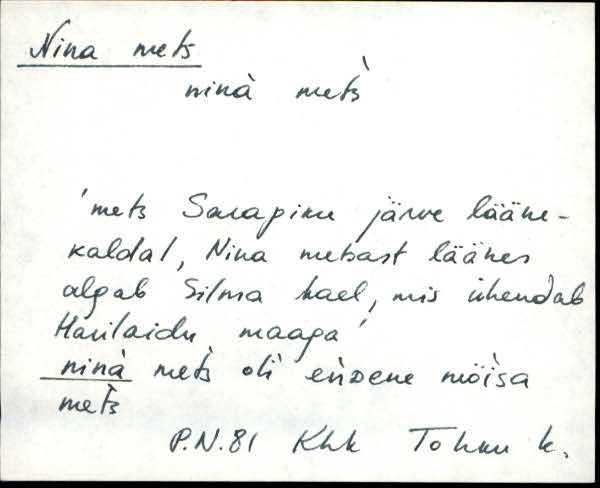 Nina mets
ninà met̀s
'mets Sarapiku järve lääne-
kaldal, Nina metsast läänes
algab Silma kael, mis ühendab
Harilaidu maaga'
ninà met̀s oli eǹzene mõisa
met̀s
P.N.81 Khk Tohku k.